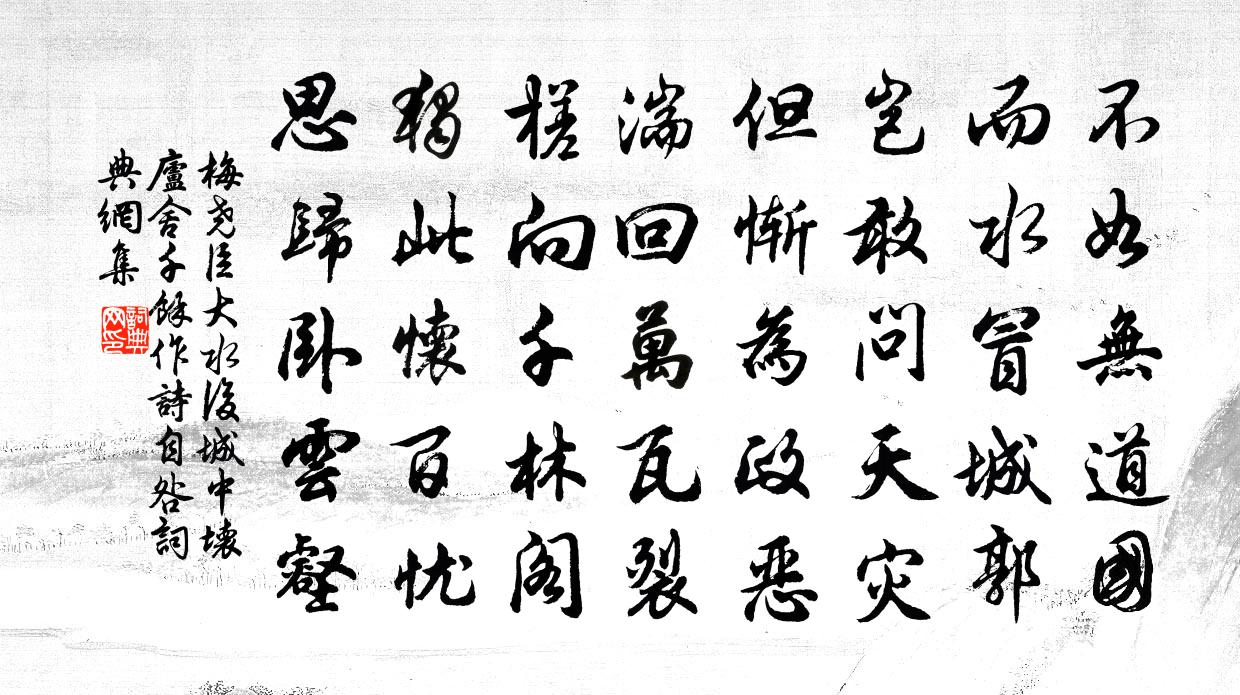 不如無道國
而水冒城郭
豈敢問天災
但慚為政惡
湍回萬瓦裂
槎向千林閣
獨此懷百忧
思歸卧雲壑
梅堯臣大水後城中壞
廬舍千餘作詩自咎詞
典網集
詞典
网印